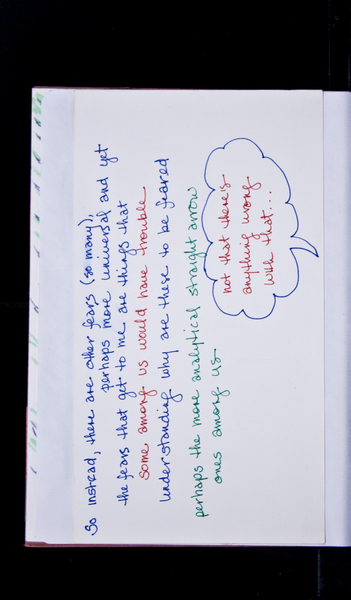 So instead, there are other fears (so many),
perhaps more universal and yet
the fears that get to me are things that
some among us would have trouble
understanding why are these to be feared
perhaps the more analytical straight arrow
ones among us
not that there's
anything wrong
with that...